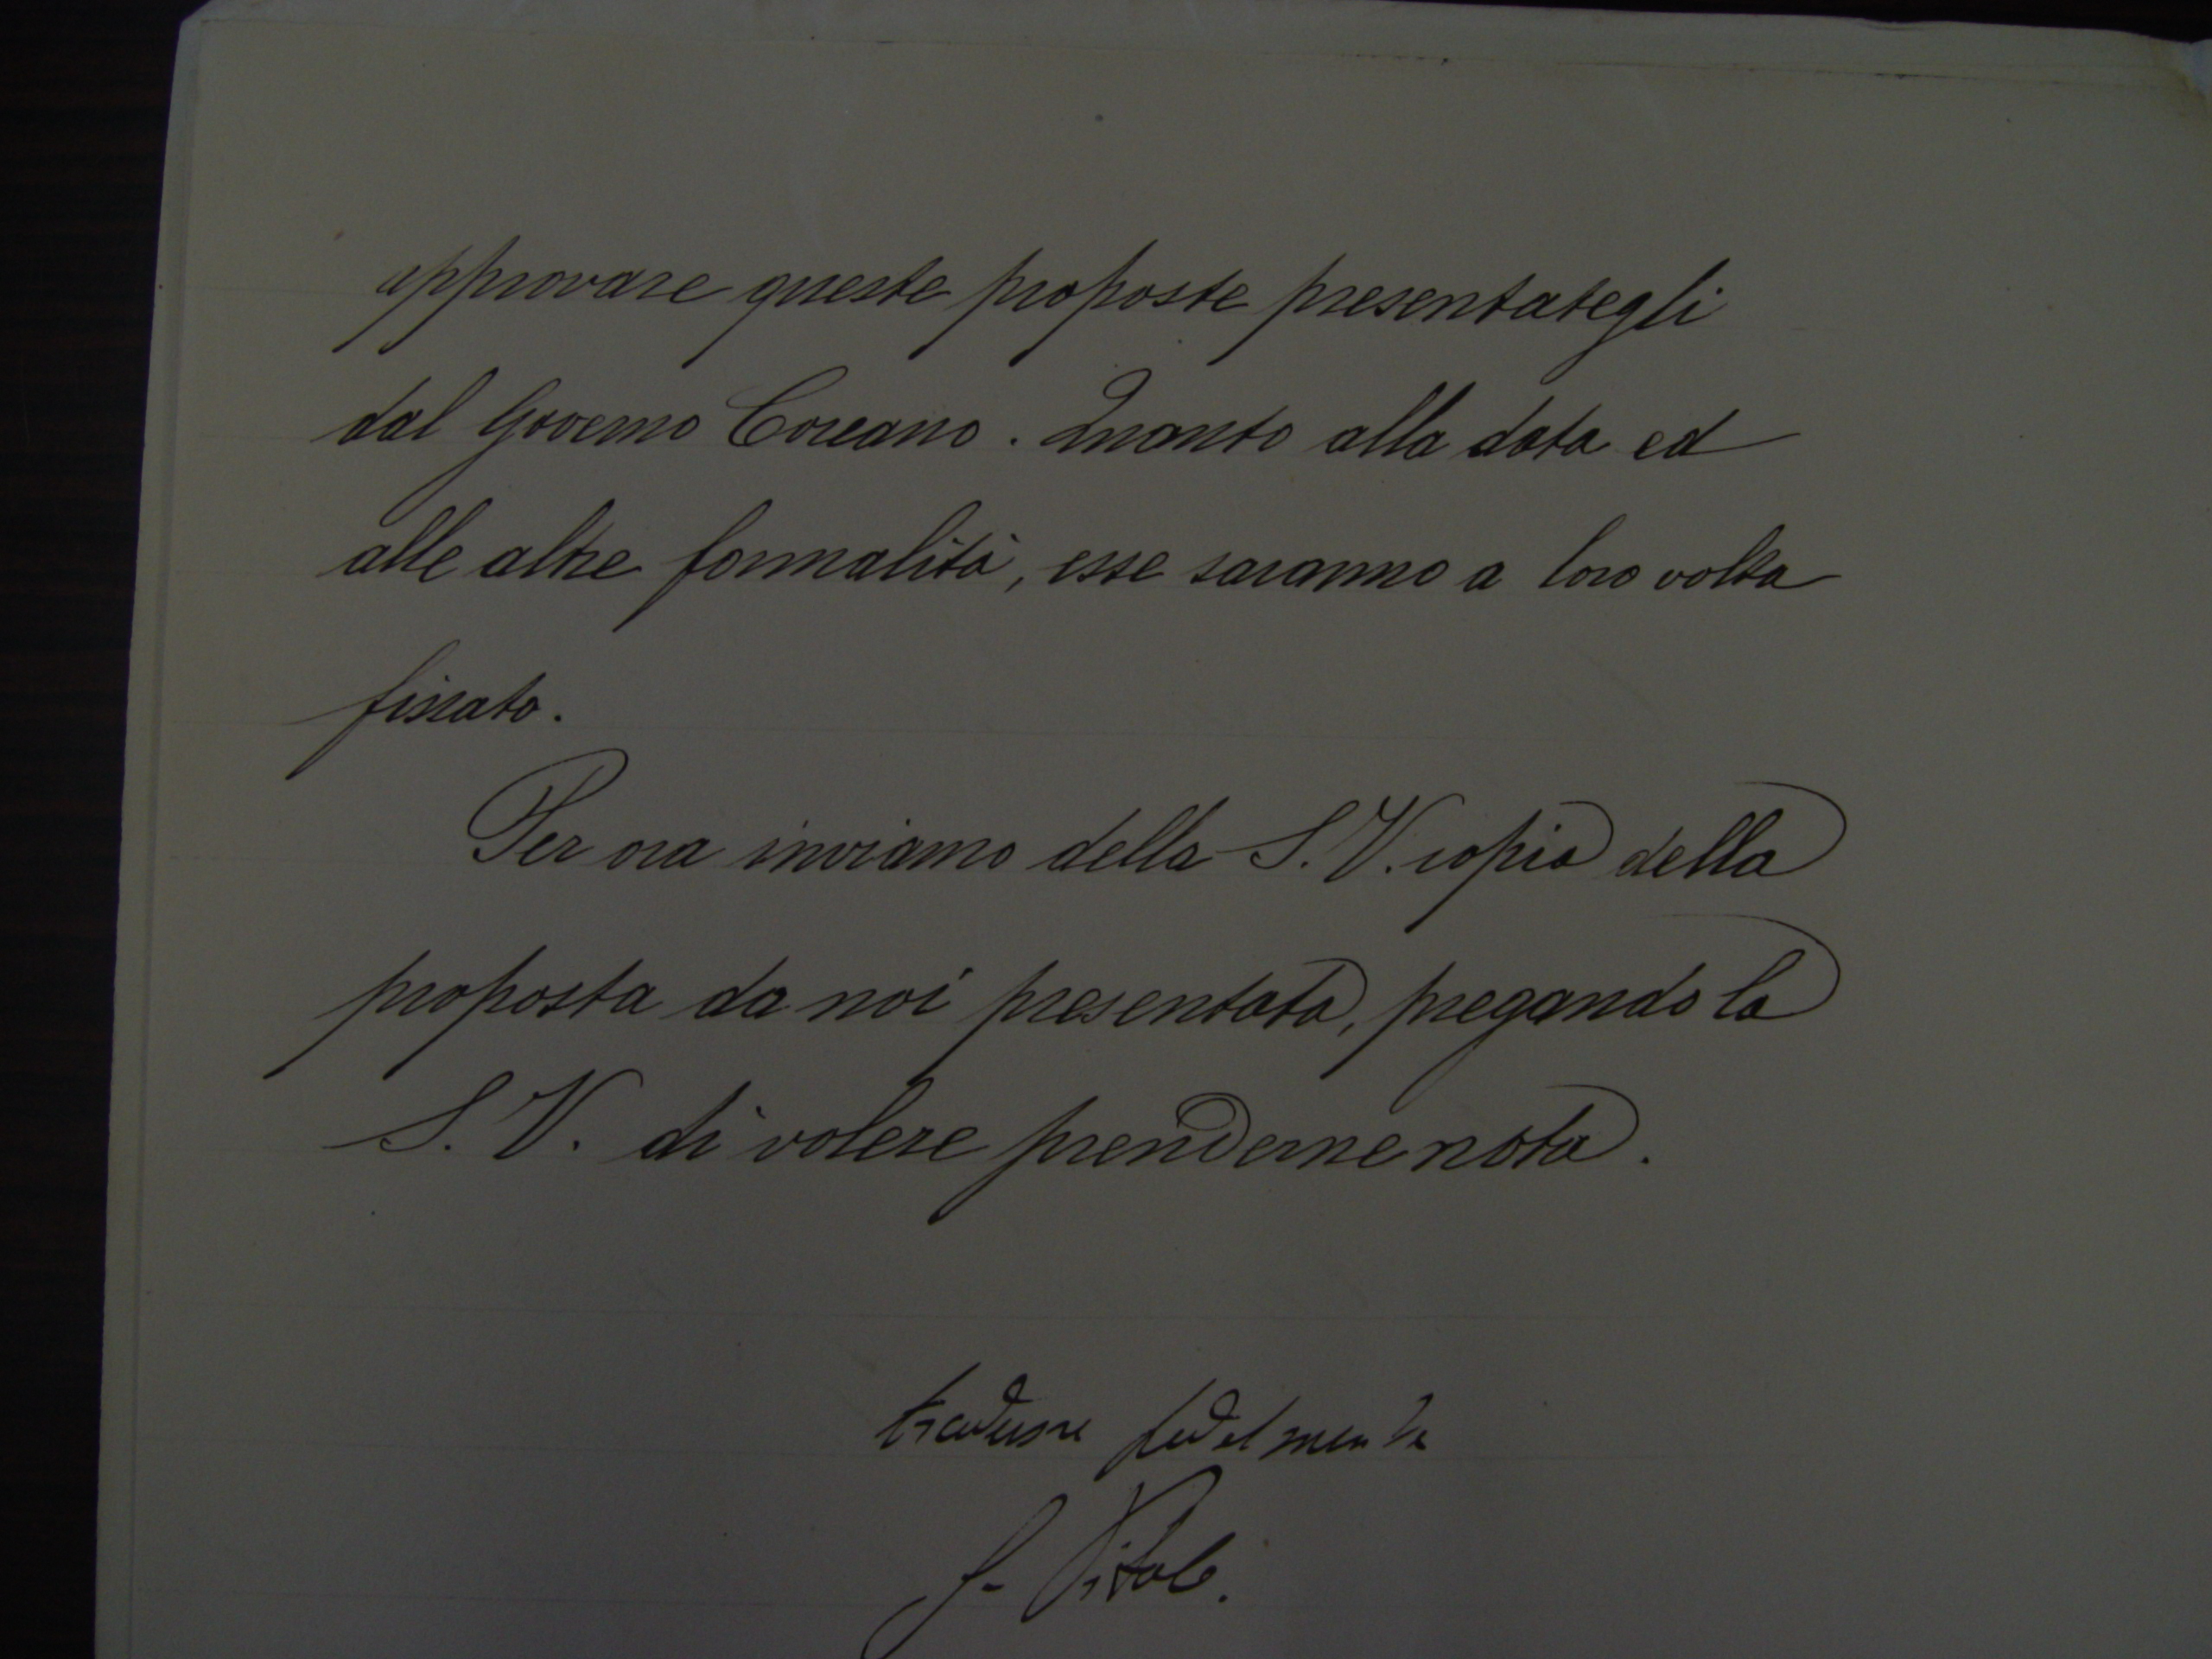 approvare queste proposte presentategli
dal Governo Coreano. Quanto alla data ed
alle altre formalità, esse saranno a loro volta
fissato.
Per ora inviamo della S. V. copia della
proposta da noi presentata, pregando la
S. V. di volere prenderne nota.
tradusse fedelmente
G. Vitale.